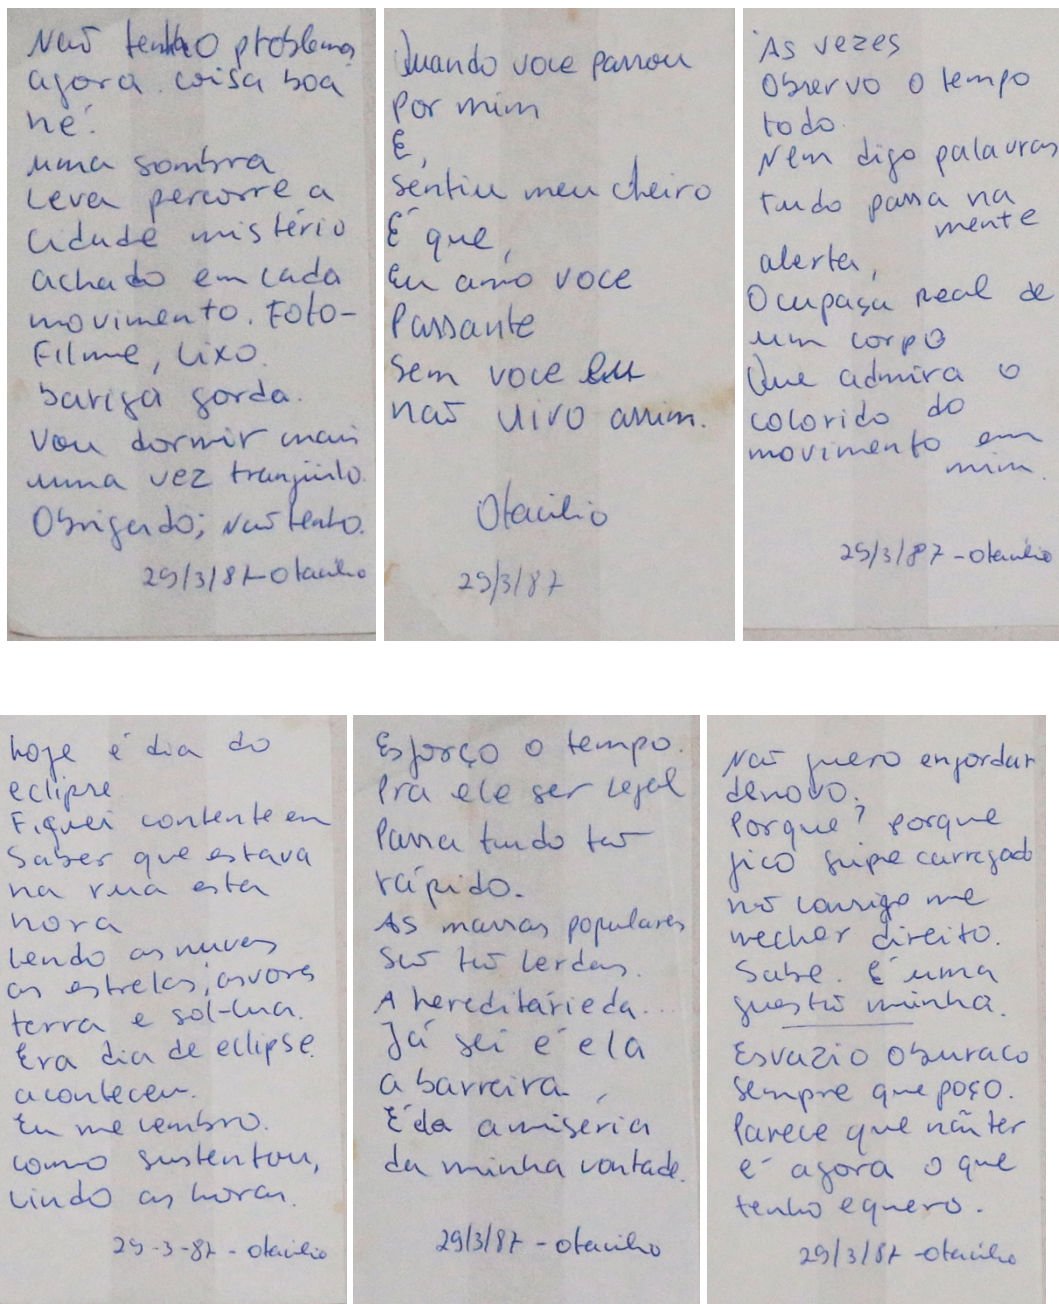 Não tenho problema
agora. coisa boa
né.
uma sombra
Leva percorre a
cidade mistério
achado em cada
movimento. Foto-
Filme, Lixo.
bariga gorda.
Vou dormir mais
uma vez tranqüilo.
Obrigado; Não tento.
29/3/87-Otacilio
Quando voce passou
Por mim
E,
Sentiu meu cheiro
É que,
Eu amo voce
Passante
Sem voce eu
não vivo assim.
Otacilio
29/3/87
As vezes
Observo o tempo
todo.
Nem digo palavras
tudo passa na
mente
alerta,
Ocupaçã real de
um corpo
Que admira o
colorido do
movimento em
mim.
29/3/87-Otacilio
hoje é dia do
eclipse
Fiquei contente em
Saber que estava
na rua esta
hora
Lendo as nuves
as estrelas, asvores
terra e sol-lua.
Era dia de eclipse.
aconteceu.
Eu me lembro.
como sustentou,
Lindo as horas.
29-3-87-Otacilio
Esforço o tempo.
Pra ele ser legal
Passa tudo tão
rápido.
As massas populares
São tão Lerdas.
A hereditárieda...
Já sei é ela
a barreira.
É da a miséria
da minha vontade.
29/3/87-Otacilio
Não quero engordar
denovo.
Porque? porque
fico gripe carregado
não consigo me
mecher direito.
Sabe. É uma
questão minha.
Esvazio oburaco
sempre que poço.
Parece que não ter
é agora o que
tenho equero.
29/3/87-Otacilio